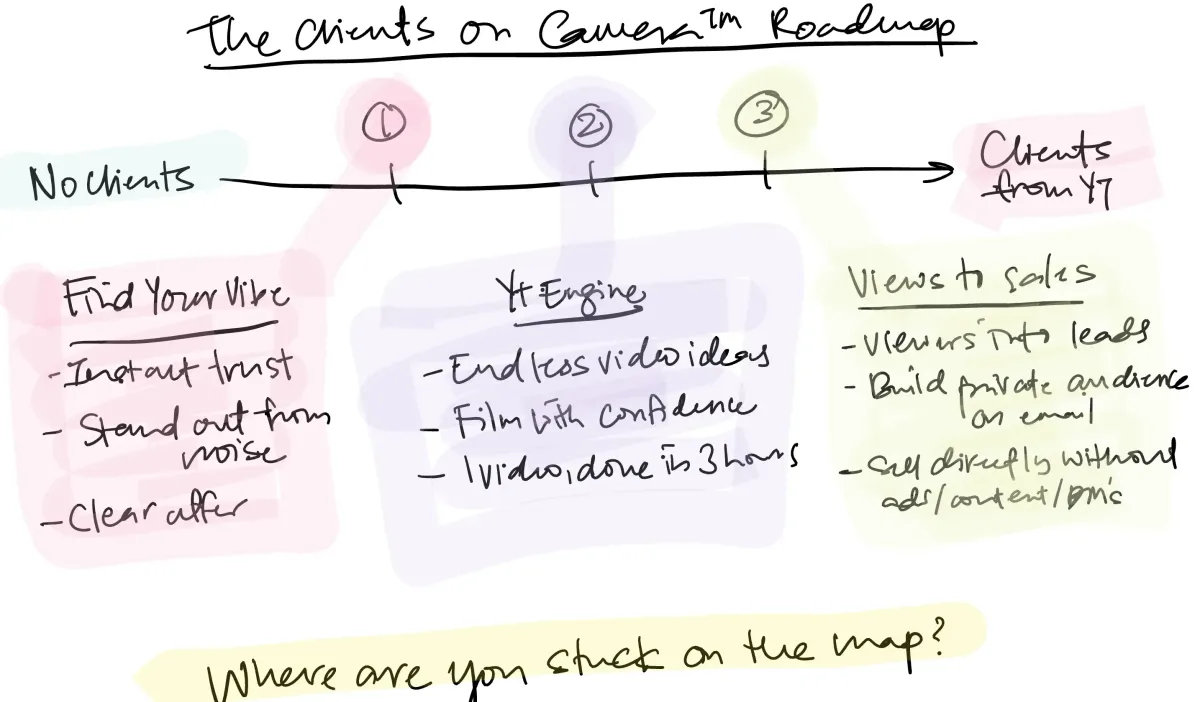 The Clients on Camera™ Roadmap
1
2
3
No clients
Clients
from YT
Find Your Vibe
- Instant trust
- Stand out from
noise
- Clear offer
Yt Engine
- Endless video ideas
- Film with confidence
- 1 video, done in 3 hours
Views to sales
- Viewers into leads
- Build private audience
on email
- Sell directly without
ads/content/DM's
Where are you stuck on the map?